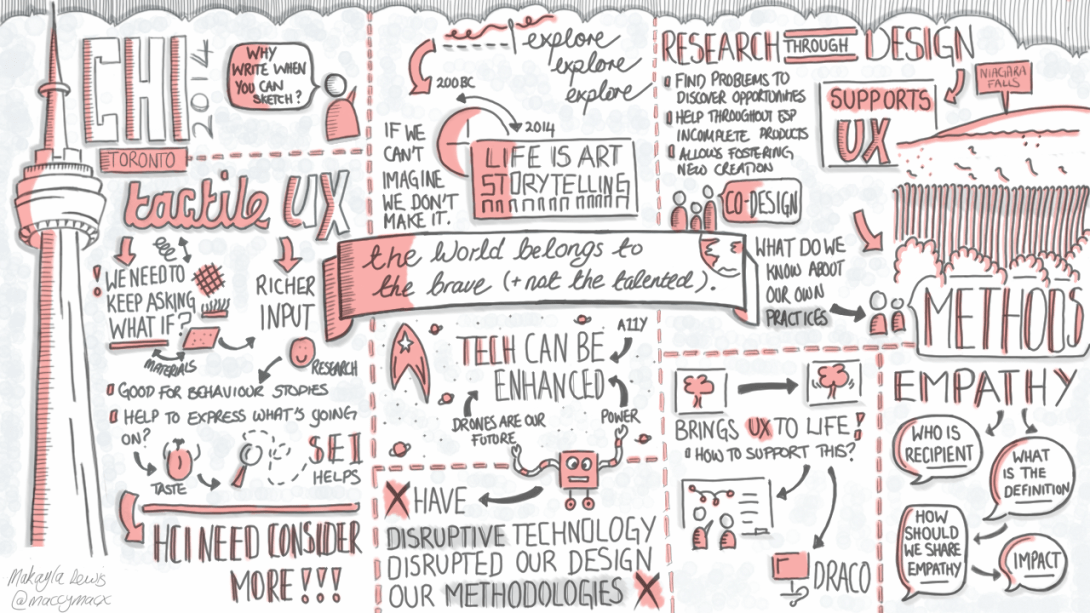 CHI
2014
TORONTO
WHY
WRITE WHEN
YOU CAN
SKETCH?
tactile UX
! WE NEED TO
KEEP ASKING
WHAT IF?
MATERIALS
RICHER
INPUT
RESEARCH
GOOD FOR BEHAVIOUR STUDIES
HELP TO EXPRESS WHAT'S GOING
ON?
TASTE
SEI
HELPS
HCI NEED CONSIDER
MORE!!!
Makayla Lewis
@maccymacx
explore
explore
explore
200BC
2014
IF WE
CAN'T
IMAGINE
WE DON'T
MAKE IT.
LIFE IS ART
STORYTELLING
the World belongs to
the brave (+ not the talented).
A11Y
TECH CAN BE
ENHANCED
DRONES ARE OUR
FUTURE
POWER
X HAVE
DISRUPTIVE TECHNOLOGY
DISRUPTED OUR DESIGN
OUR METHODOLOGIES X
RESEARCH THROUGH DESIGN
FIND PROBLEMS TO
DISCOVER OPPORTUNITIES
HELP THROUGHOUT ESP
INCOMPLETE PRODUCTS
ALLOWS FOSTERING
NEW CREATION
SUPPORTS
UX
NIAGARA
FALLS
CO-DESIGN
WHAT DO WE
KNOW ABOUT
OUR OWN
PRACTICES
METHODS
BRINGS UX TO LIFE!
HOW TO SUPPORT THIS?
DRACO
EMPATHY
WHO IS
RECIPIENT
WHAT
IS THE
DEFINITION
HOW
SHOULD
WE SHARE
EMPATHY
IMPACT